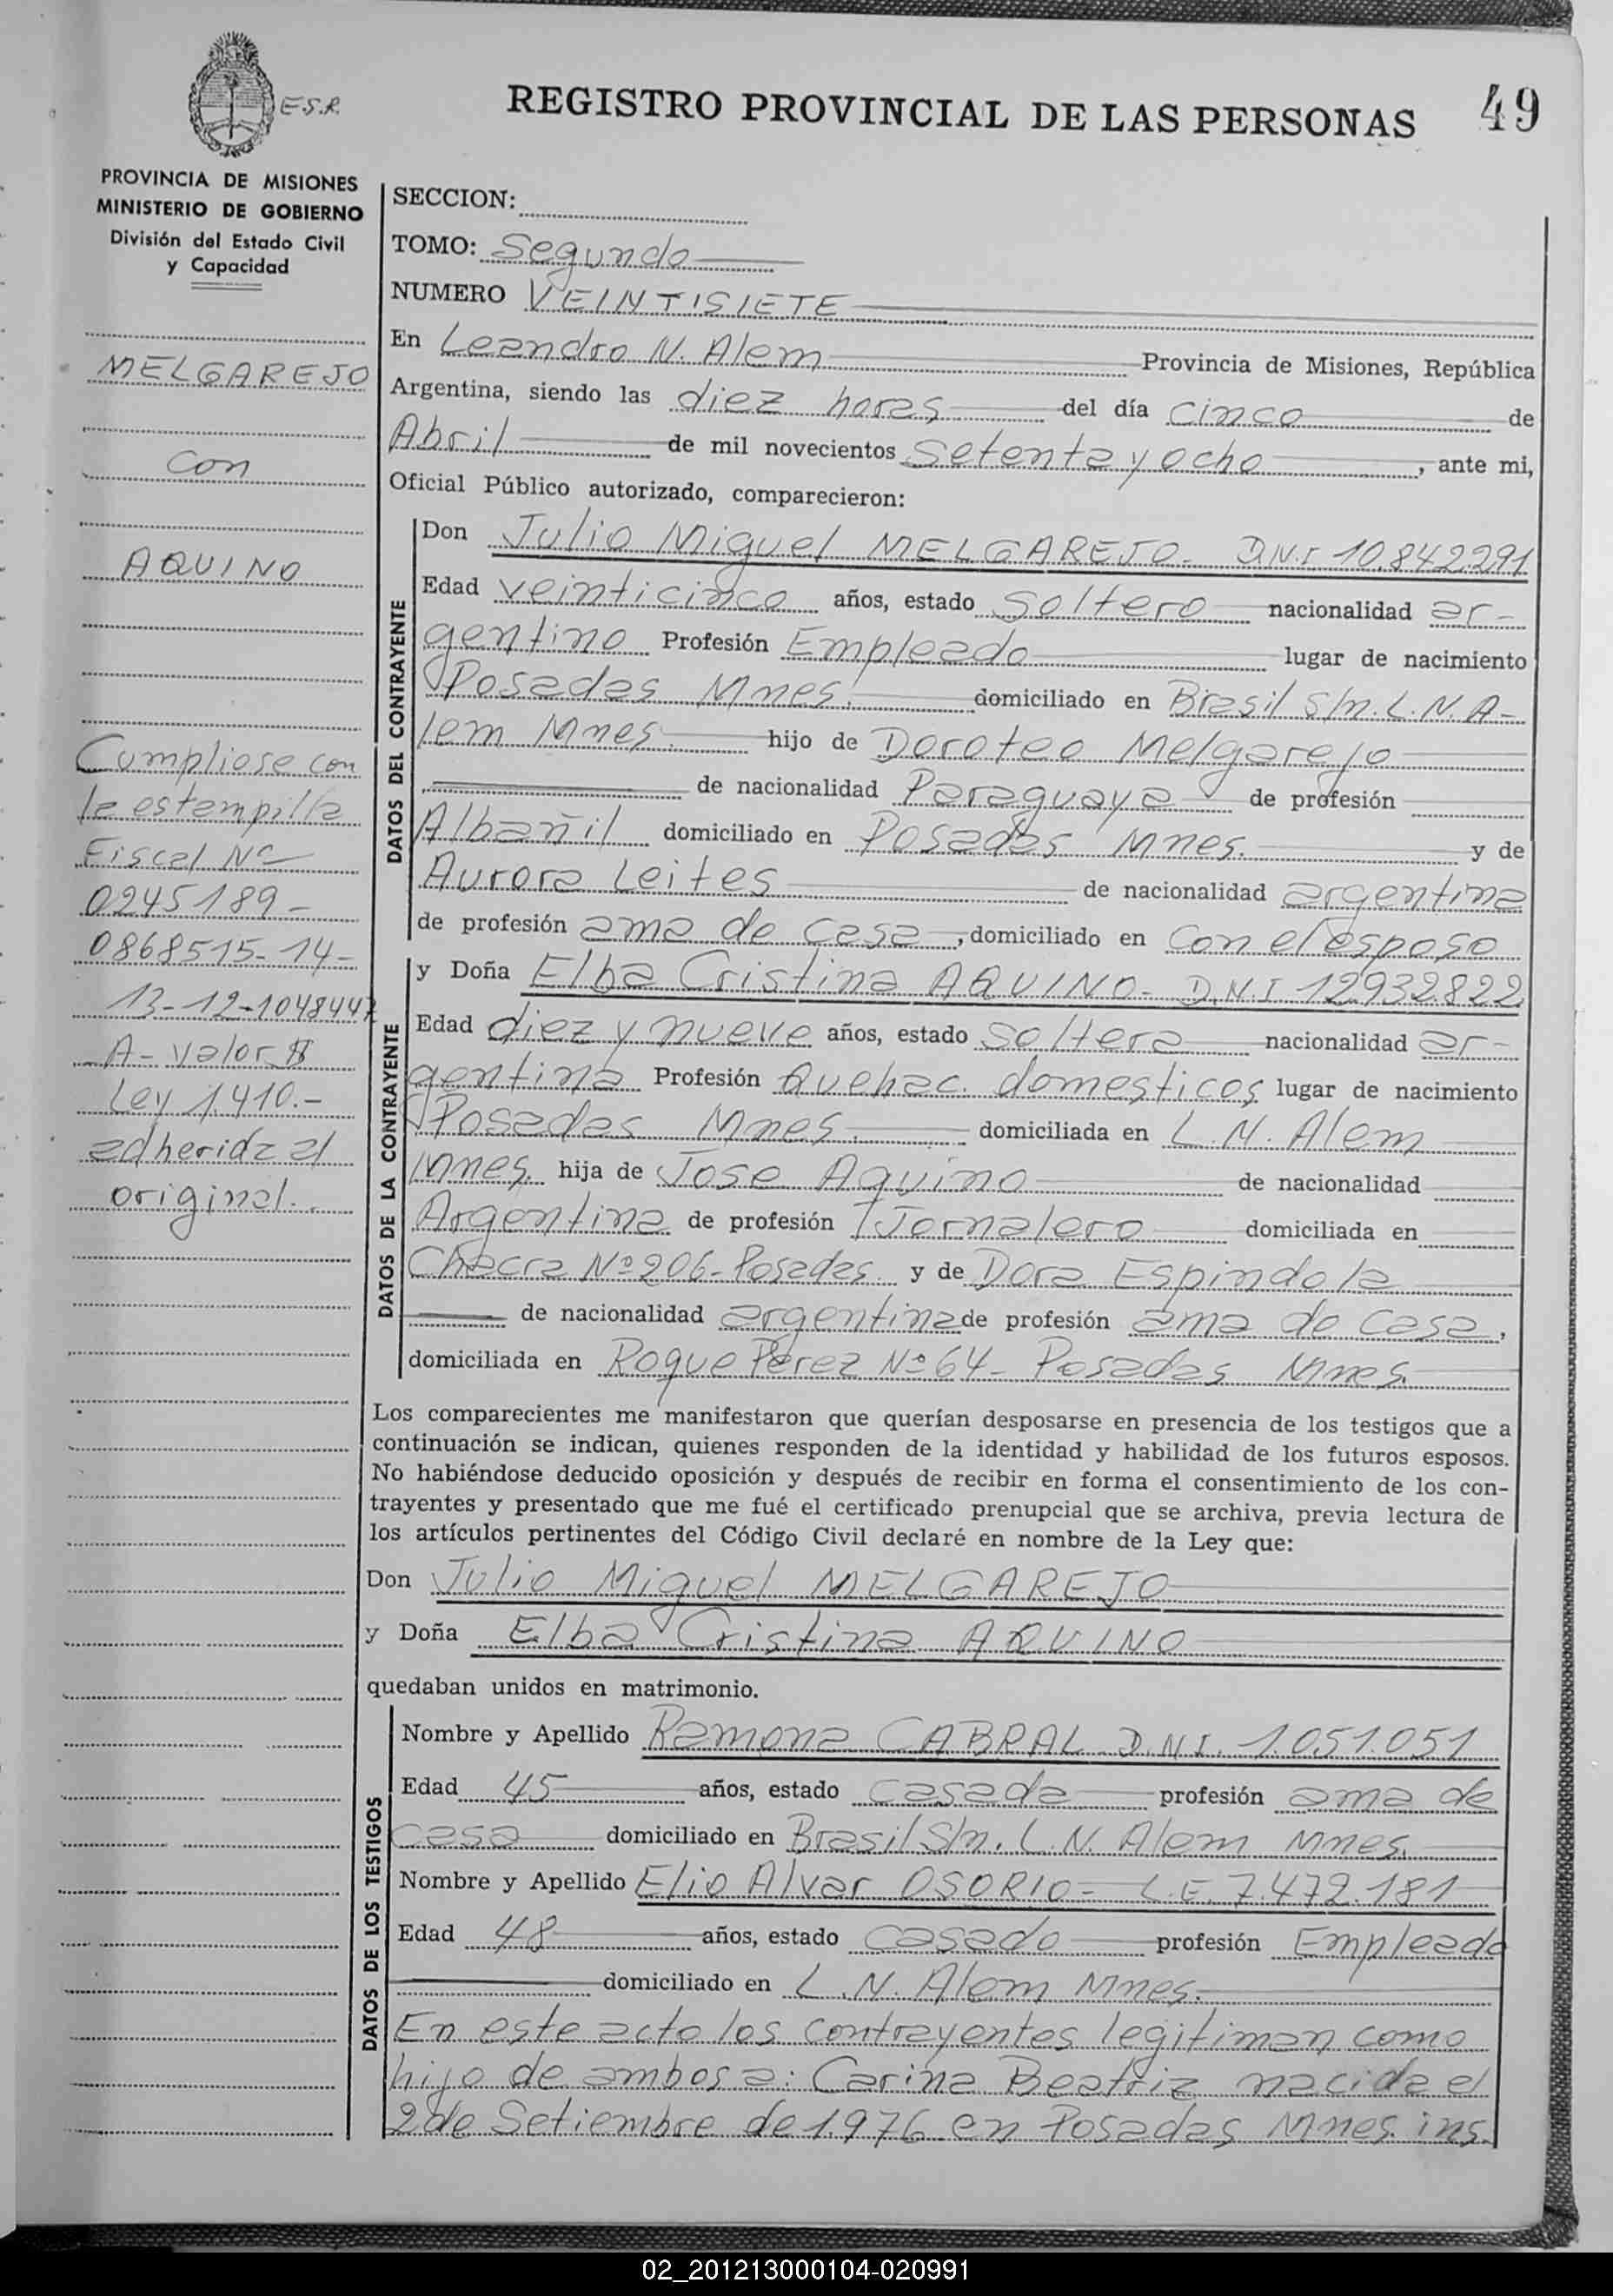 E.S.R.
REGISTRO PROVINCIAL DE LAS PERSONAS 49
PROVINCIA DE MISIONES
MINISTERIO DE GOBIERNO
División del Estado Civil
y Capacidad
MELGAREJO
con
AQUINO
Cumpliose con
la estampilla
Fiscal Nº
0245189-
0868515-14-
13-12-1048447
A- valor $
Ley 1.410.-
adherida al
original.
SECCION:
TOMO: Segundo
NUMERO VEINTISIETE
En Leandro N. Alem Provincia de Misiones, República
Argentina, siendo las diez horas del día cinco de
Abril de mil novecientos setenta y ocho, ante mi,
Oficial Público autorizado, comparecieron:
DATOS DEL CONTRAYENTE
Don Julio Miguel MELGAREJO- D.N.I 10.842.291
Edad veinticinco años, estado soltero nacionalidad ar-
gentino Profesión Empleado lugar de nacimiento
Posadas Mnes. domiciliado en Brasil S/n. L. N. A-
lem Mnes. hijo de Doroteo Melgarejo
de nacionalidad Paraguaya de profesión
Albañil domiciliado en Posadas Mnes. y de
Aurora Leites de nacionalidad argentina
de profesión ama de casa, domiciliado en con el esposo
DATOS DE LA CONTRAYENTE
y Doña Elba Cristina AQUINO- D.N.I 12.932.822
Edad diez y nueve años, estado soltera nacionalidad ar-
gentina Profesión Quehac. domesticos lugar de nacimiento
Posadas Mnes. domiciliada en L. N. Alem
Mnes. hija de Jose Aquino de nacionalidad
Argentina de profesión Jornalero domiciliada en
Chacra Nº 206- Posadas y de Dora Espindola
de nacionalidad argentina de profesión ama de casa,
domiciliada en Roque Pérez Nº 64- Posadas Mnes.
Los comparecientes me manifestaron que querían desposarse en presencia de los testigos que a
continuación se indican, quienes responden de la identidad y habilidad de los futuros esposos.
No habiéndose deducido oposición y después de recibir en forma el consentimiento de los con-
trayentes y presentado que me fué el certificado prenupcial que se archiva, previa lectura de
los artículos pertinentes del Código Civil declaré en nombre de la Ley que:
Don Julio Miguel MELGAREJO
y Doña Elba Cristina AQUINO
quedaban unidos en matrimonio.
DATOS DE LOS TESTIGOS
Nombre y Apellido Ramona CABRAL D.N.I. 1.051.051
Edad 45 años, estado casada profesión ama de
casa domiciliado en Brasil S/n. L. N. Alem Mnes.
Nombre y Apellido Elio Alvar OSORIO- L.E. 7.472.181
Edad 48 años, estado casado profesión Empleado
domiciliado en L. N. Alem Mnes.
En este acto los contrayentes legitiman como
hijo de ambos a: Carina Beatriz nacida el
2 de Setiembre de 1.976 en Posadas Mnes. ins.
02_201213000104-020991